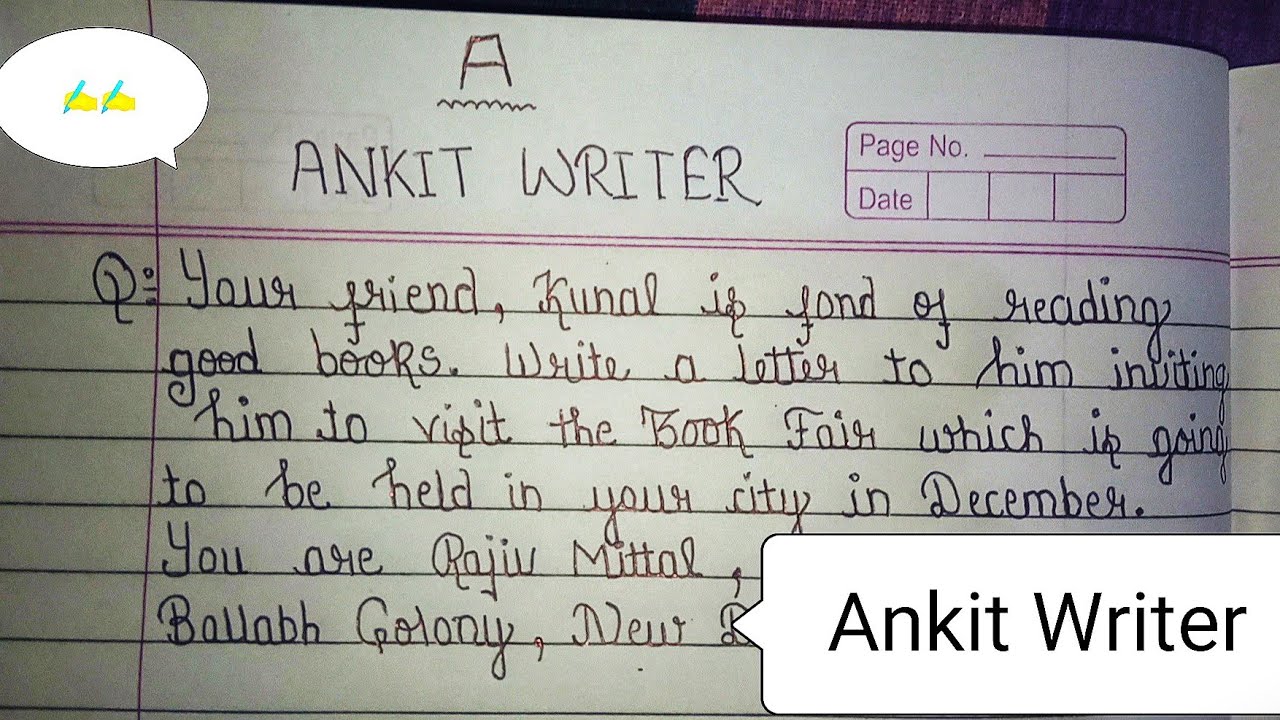 A
ANKIT WRITER
Page No.
Date
Q:- Your friend, Kunal is fond of reading
good books. Write a letter to him inviting
him to visit the Book Fair which is going
to be held in your city in December.
You are Rajiv Mittal,
Ballabh Colony, New
Ankit Writer